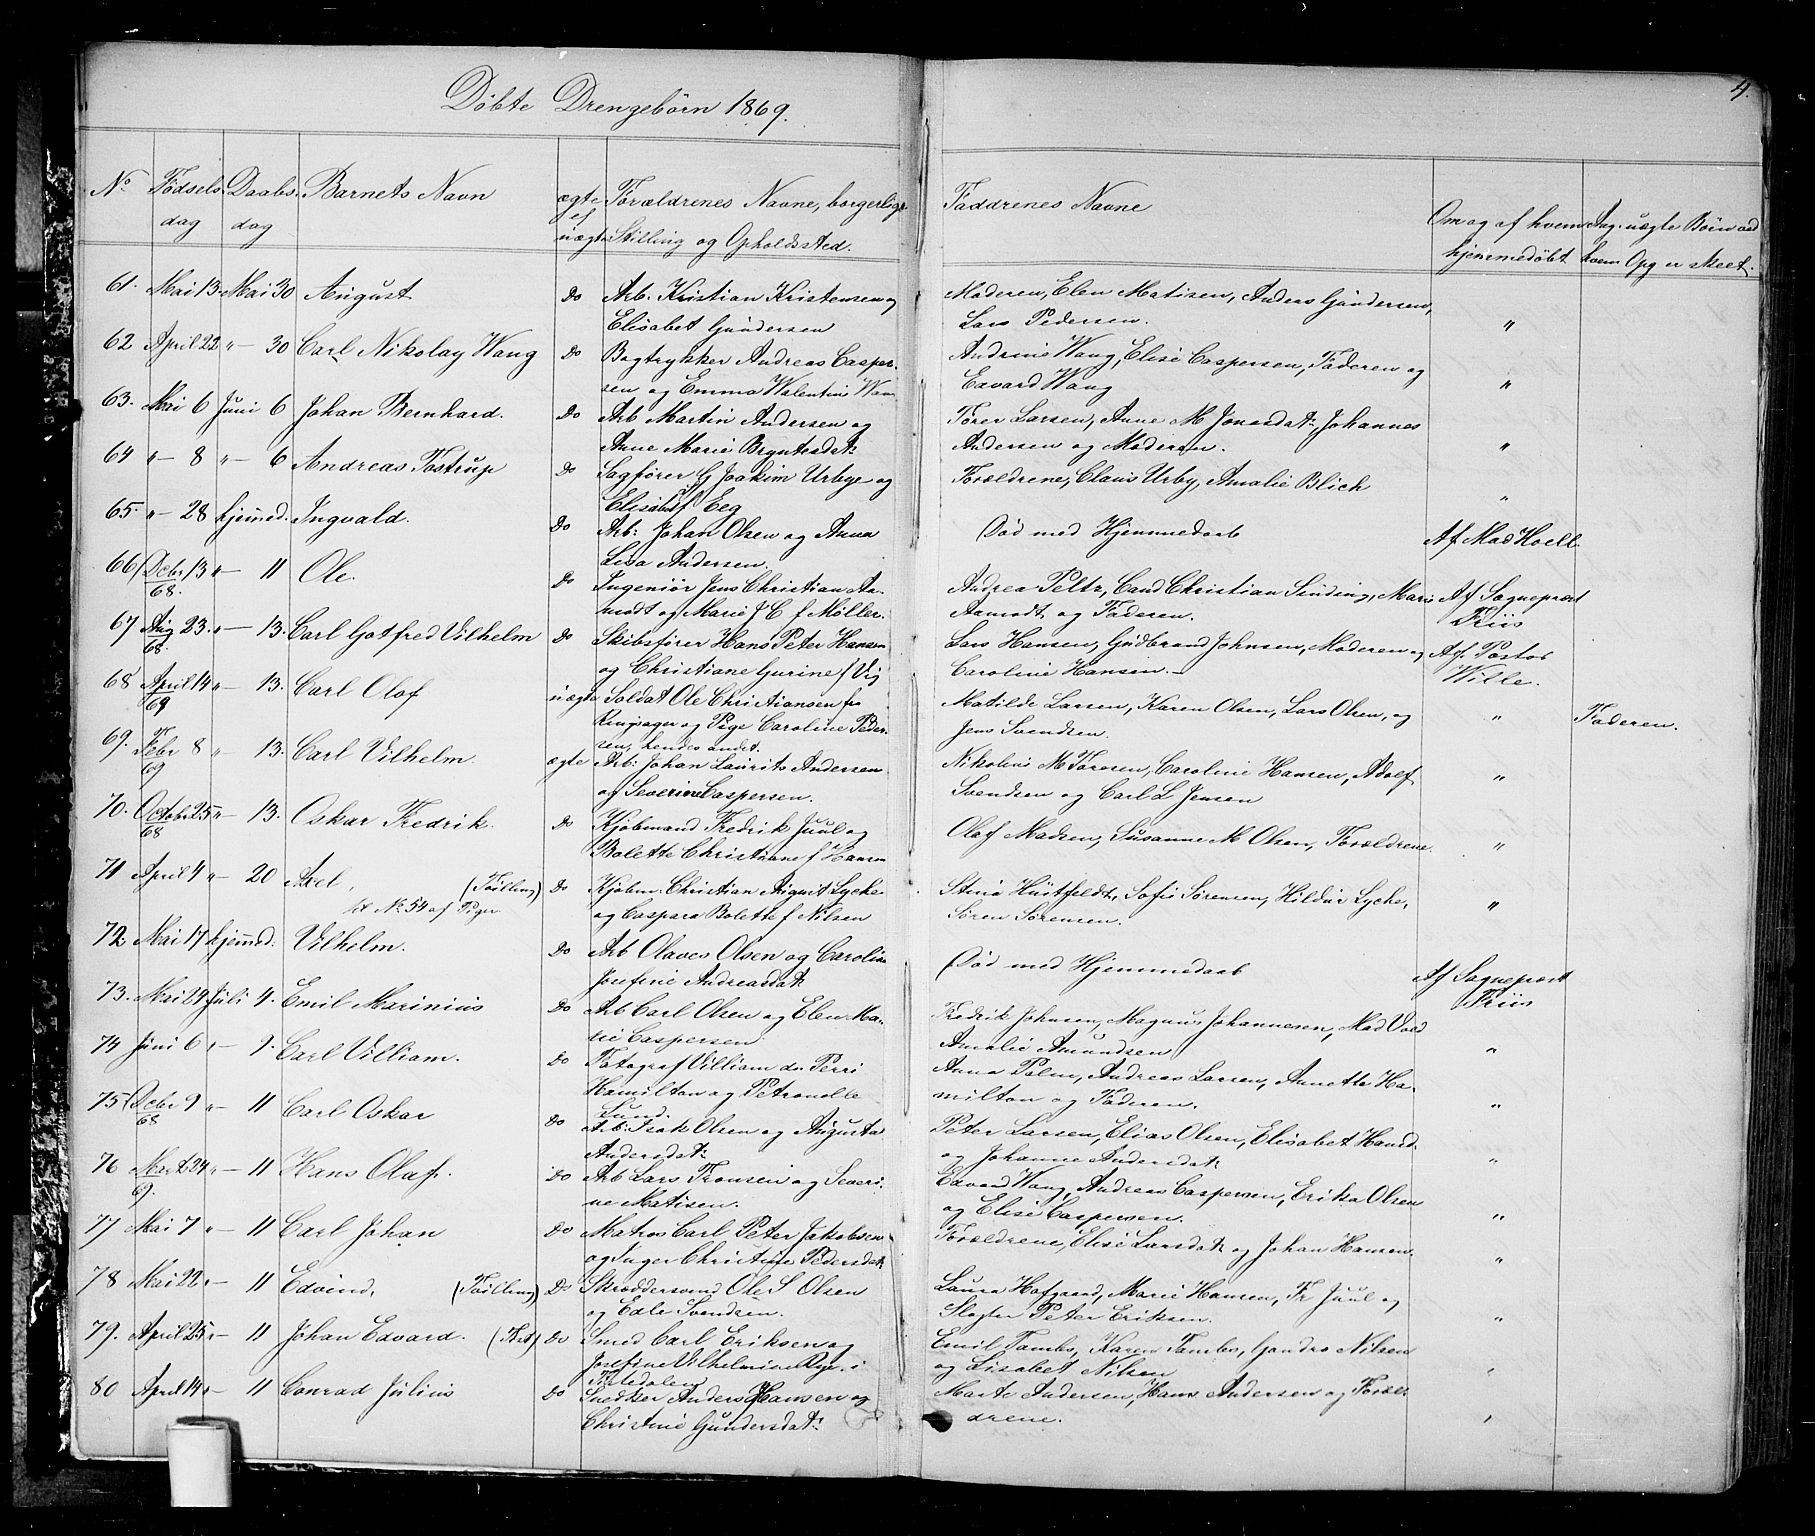 4.
Döbte Drengebörn 1869.
No Fødsels dag Daabs dag Barnets Navn ægte el uægte Forældrenes Navne, borgerlige Stilling og Opholdssted. Faddrenes Navne Om og af hvem hjemmedøbt Ang. uægte Börn ad hvem Opg er skeet.
61. Mai 13 Mai 30 August Do Arb. Kristian Kristensen og Moderen, Elen Matisen, Anders Gundersen,
Elisabet Gundersen Lars Pedersen. "
62 April 22 " 30 Carl Nikolay Wang Do Bogtrykker Andreas Casper- Andrine Wang, Elise Caspersen, Faderen og
sen og Emma Walentine Wan Edvard Wang "
63. Mai 6 Juni 6 Johan Bernhard. Do Arb Martin Andersen og Torer Larsen, Anne M Jonasdat:, Johannes
Anne Marie Bryntesdat: Andersen og Moderen. "
64 " 8 " 6 Andreas Tostrup Do Sagfører G Joakim Urbye og Forældrene, Claus Urby, Amalie Blich
Elisabet f Eeg "
65. " 28 hjemmed. Ingvald. Do Arb: Johan Olsen og Anna Død med Hjemmedaab Af Mad Hoell.
Lisa Andersen.
66 Dcbr 13 68. " 11 Ole. Do Ingeniør Jens Christian Aa- Andrea Peltz, Cand Christian Sinding, Marie Af Sognepræst
modt og Marie J C f Møller. Aamodt, og Faderen. Friis
67 Aug 23. 68. " 13. Carl Gotfred Vilhelm Do Skibsfører Hans Peter Hansen Lars Hansen, Gudbrand Johnsen, Moderen og Af. Pastor
og Christiane Gurine f Vig Caroline Hansen. Wille.
68 April 14 69 " 13. Carl Olaf uægte Soldat Ole Christiansen fra Matilde Larsen, Karen Olsen, Lars Olsen, og " Faderen.
Ringsager og Pige Caroline Peder- Jens Svendsen.
sen, hendes andet.
69. Febr 8 69 " 13. Carl Vilhelm. ægte Arb: Johan Laurits Andersen Nikoline M Toresen, Caroline Hansen, Adolf "
og Severine Caspersen. Svendsen og Carl L Jensen
70. Octobr 25 68 " 13. Oskar Fredrik. Do Kjøbmand Fredrik Juul og Olaf Madsen, Susanne M Olsen, Forældrene. "
Bolette Christiane f Hansen
71 April 4 " 20 Axel, (Tvilling) Do Kjøbm. Christian August Lycke Stina Huitfeldt, Sofie Sörensen, Hildur Lycke,
No 54 af Piger og Caspara Bolette f Nilsen Sören Sörensen. "
72 Mai 17 hjemmed. Vilhelm. Do Arb Olaves Olsen og Caroline Død med Hjemmedaab Af Sognepræst
Josefine Andreasdat: Friis
73. Mai 24 Juli 4. Emil Marinius Do Arb Carl Olsen og Elen Ma- Fredrik Johnsen, Magnus Johannesen, Mad Vold
rie Caspersen. Amalie Amundsen "
74 Juni 6 " 9. Carl Villiam. Do Fotograf Villiam de Perri Anna Palm, Andreas Larsen, Annette Ha-
Hamilton og Petronelle milton og Faderen. "
Lund.
75 Dcbr 9 68 " 11 Carl Oskar Do Arb: Isak Olsen og Augusta Peter Larsen, Elias Olsen, Elisabet Hansd.
Andersdat: og Johanne Andersdat: "
76 Marts 24 69. " 11 Hans Olaf. Do Arb Lars Tronsen og Severi- Edvard Wang, Andreas Caspersen, Erika Olsen
ne Matisen. og Elise Caspersen. "
77 Mai 7 " 11 Carl Johan Do Matros Carl Peter Jakobsen Forældrene, Elise Larsdat: og Johan Hansen.
og Inger Christine Pedersdat: "
78 Mai 22 " 11 Edvind, (Tvilling) Do Skræddersvend Ole S Olsen Laura Hofgaard, Marie Hansen, Fr Juul og
og Edle Svendsen. Slagter Peter Eriksen. "
79. April 25 " 11 Johan Edvard. Do Smed Carl Eriksen og Emil Tambo, Karen Tambo, Gondro Nilsen
Josefine Vilhelmine Rye. i og Lisabet Nilsen "
80 April 14 " 11 Conrad Julius Do Snedker Anders Hansen og Marte Andersen, Hans Andersen og Foræl-
Christine Gundersdat: drene. "